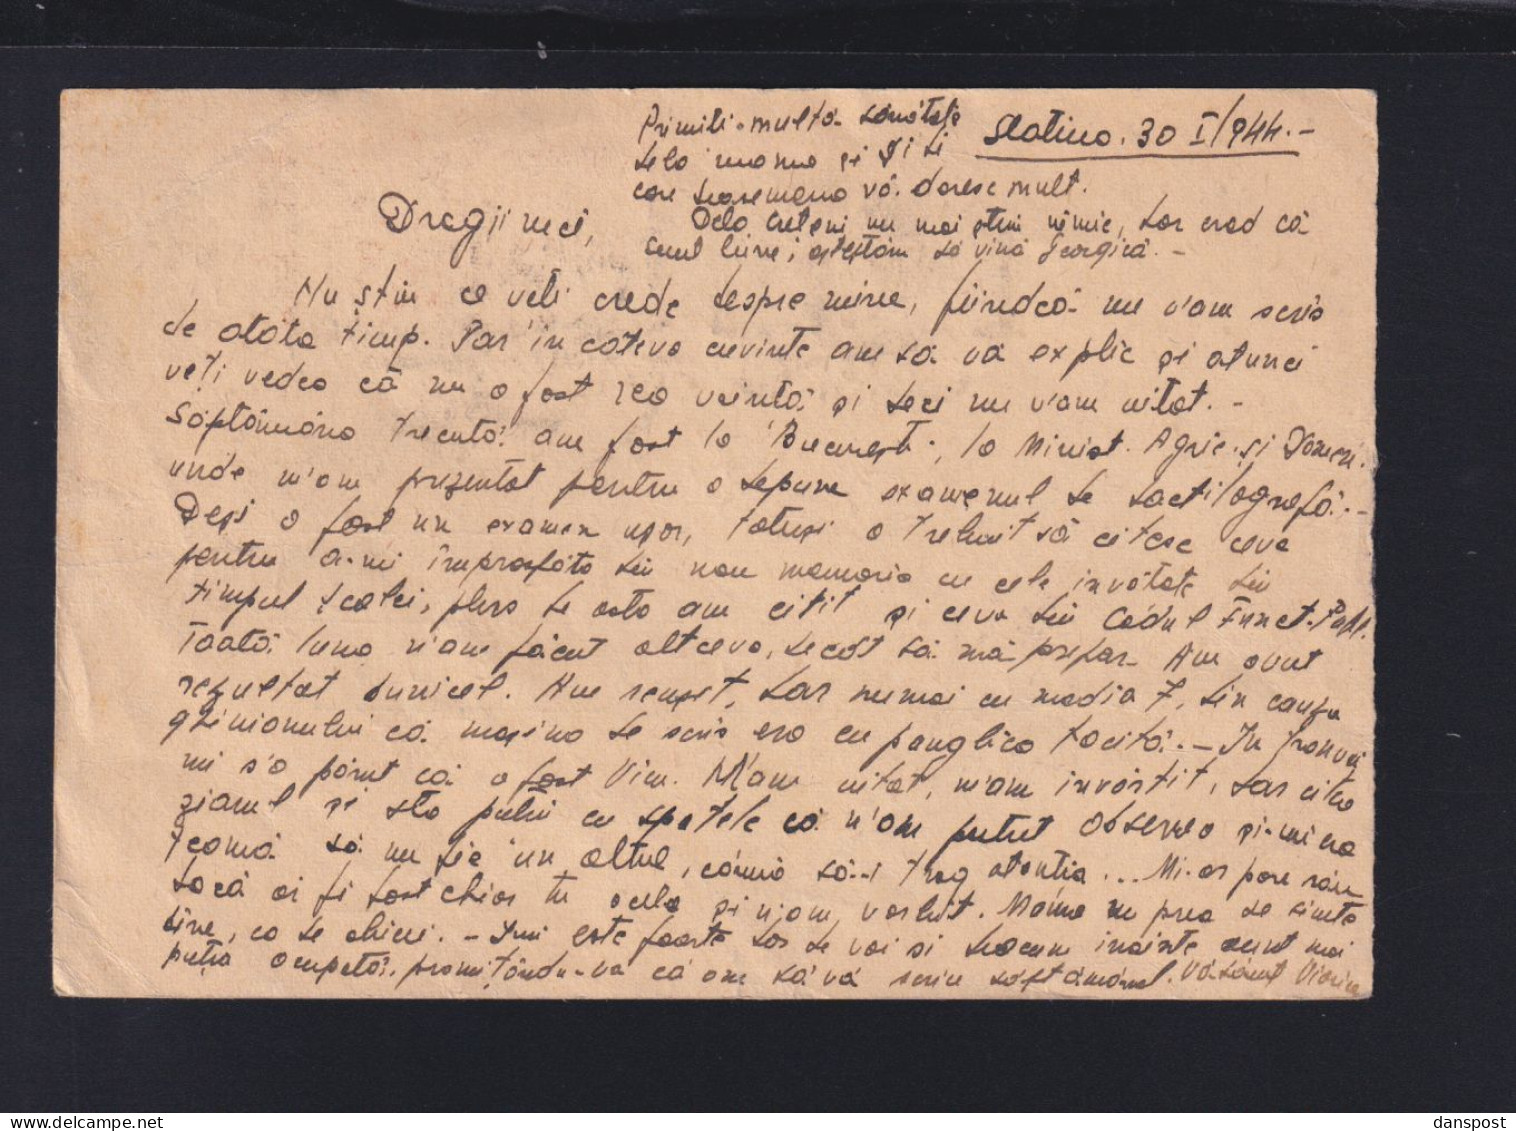 Slatina. 30 I/944.-
Primiti multă sănătate
dela mama și Gigi
care deasemenea vă doresc mult.
Dela Creteni nu mai știm nimic, dar cred că
sunt bine; așteptăm să vină Georgică.-
Dragii mei,
Nu știu ce veti crede despre mine, fiindcă nu v'am scris
de atâta timp. Dar în câteva cuvinte am să vă explic și atunci
veți vedea că nu a fost rea voință și deci nu v'am uitat.-
Săptămâna trecută am fost la București, la Minist. Agric. și Domen.
unde m'am prezentat pentru a depune examenul de dactilografă.-
Deși a fost un examen ușor, totuși a trebuit să citesc ceva
pentru a-mi împrospăta din nou memoria cu cele învătate din
timpul școlei, plus de asta am citit și ceva din Codul Funct. Publ.
Toată luna n'am făcut altceva, decât să mă prepar. Am avut
rezultat bunicel. Am reușit, dar numai cu media 7, din cauza
ghinionului că mașina de scris era cu panglica tocită.- In tramvai
mi s'a părut că a fost Vim. M'am uitat, m'am învârtit, dar citea
ziarul și sta puțin cu spatele că n'am putut observa și-mi era
teamă să nu fie un altul, căruia să-i trag atenția... Mi-ar pare rău
dacă ai fi fost chiar tu acela și n'am vorbit. Mama nu prea se simte
bine, ca de obicei. - Imi este foarte dor de voi și deacum înainte sunt mai
puțin ocupată, promițându-vă că am să vă scriu săptămânal. Vă sărut Viorica
danspost